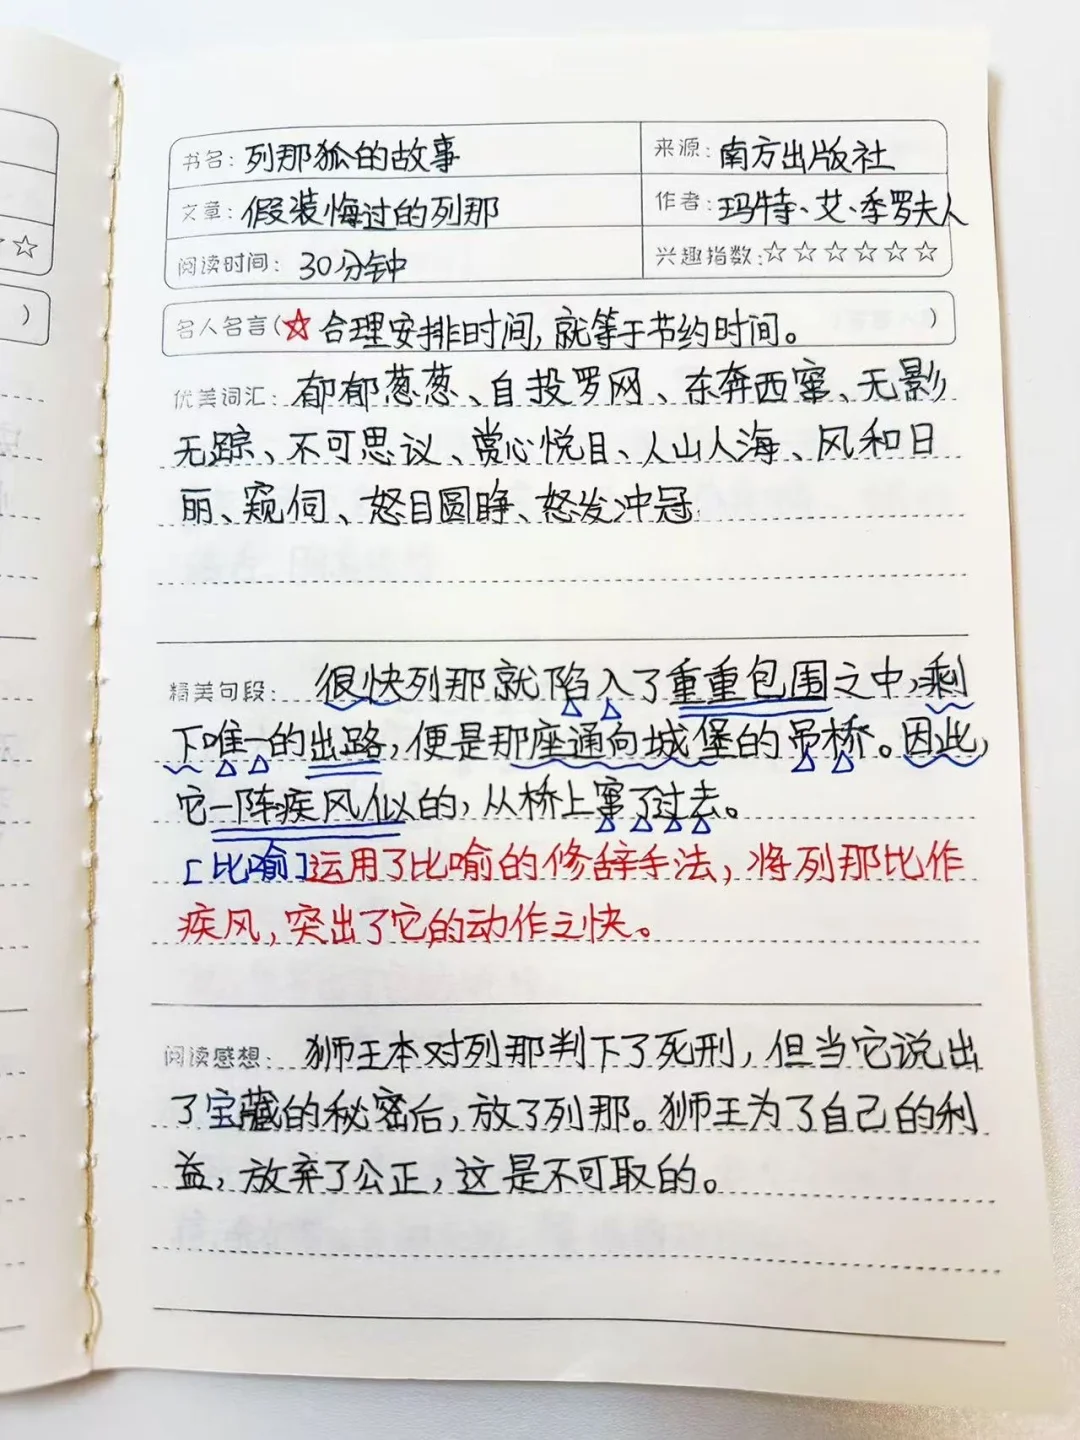 书名: 列那狐的故事 来源: 南方出版社
文章: 假装悔过的列那 作者: 玛特、艾、季罗夫人
阅读时间: 30分钟 兴趣指数:☆☆☆☆☆☆
名人名言(☆合理安排时间,就等于节约时间。)
优美词汇: 郁郁葱葱、自投罗网、东奔西窜、无影
无踪、不可思议、赏心悦目、人山人海、风和日
丽、窥伺、怒目圆睁、怒发冲冠
精美句段: 很快列那就陷入了重重包围之中,剩
下唯一的出路,便是那座通向城堡的吊桥。因此,
它一阵疾风似的,从桥上窜了过去。
[比喻]运用了比喻的修辞手法,将列那比作
疾风,突出了它的动作之快。
阅读感想: 狮王本对列那判下了死刑,但当它说出
了宝藏的秘密后,放了列那。狮王为了自己的利
益,放弃了公正,这是不可取的。